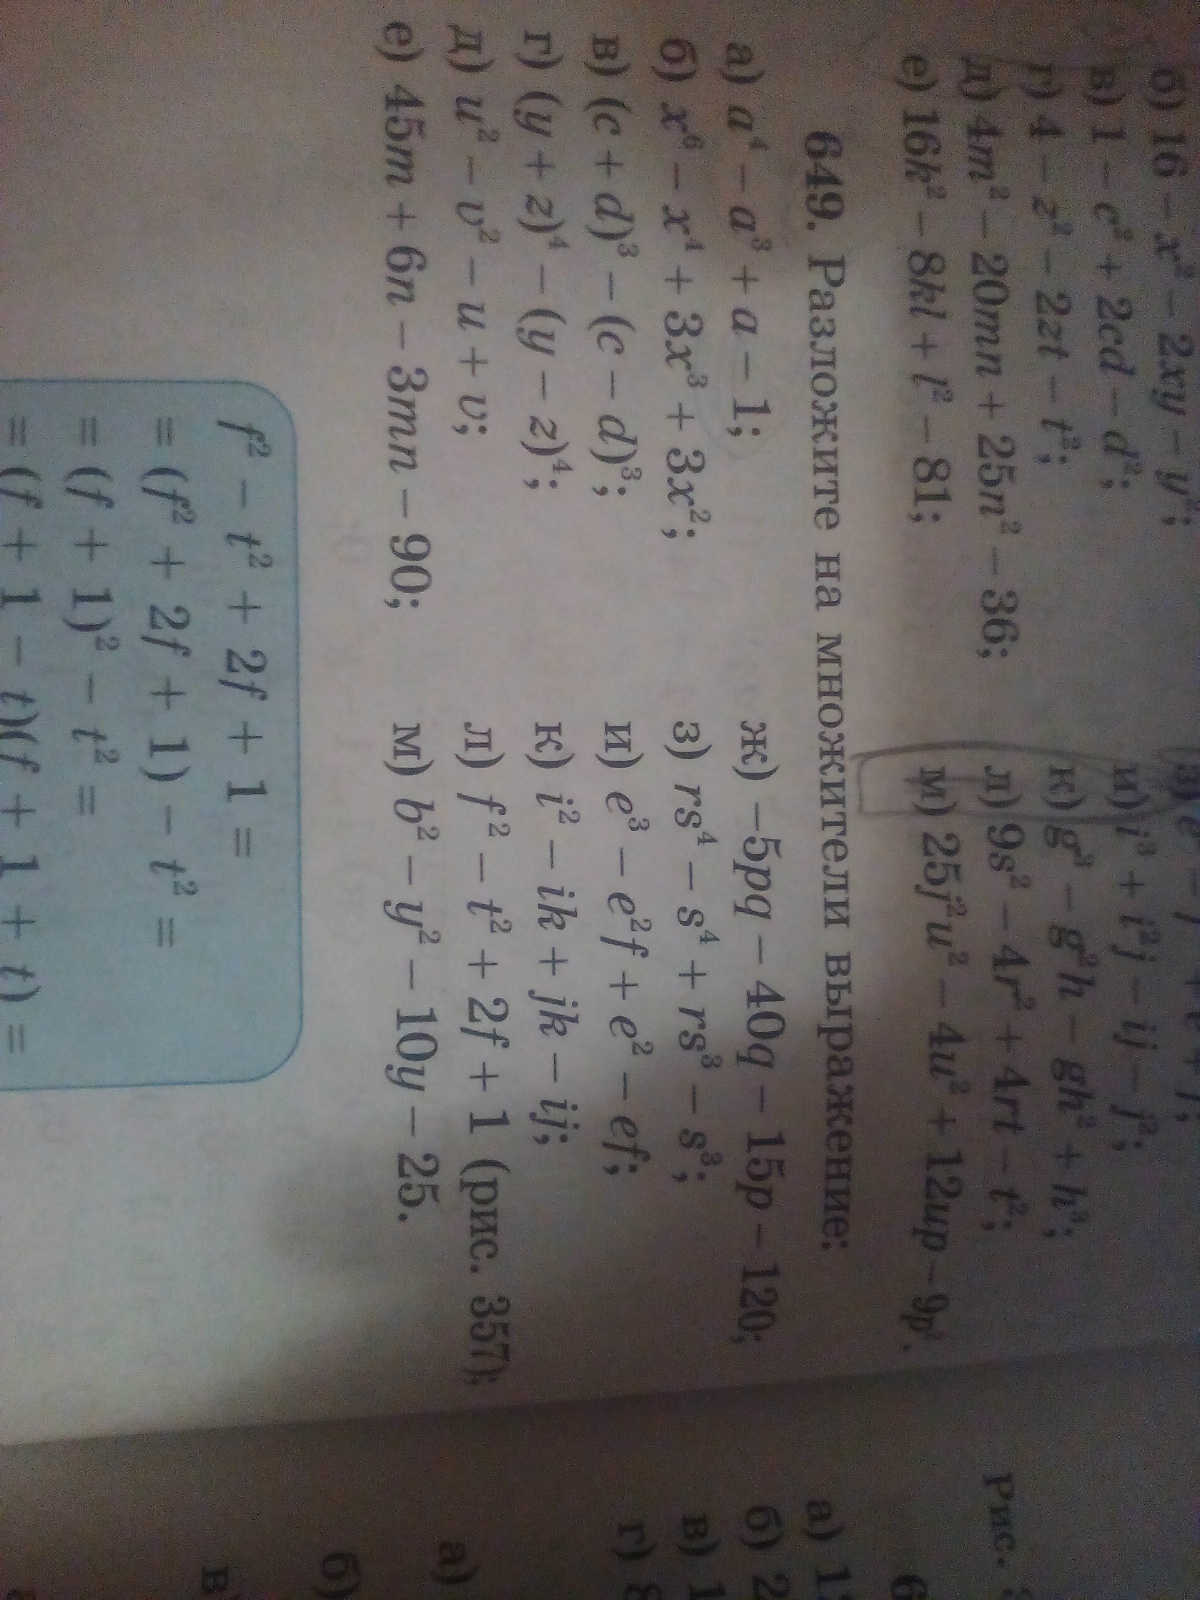 б) 16 − x² − 2xy − y²;
в) 1 − c² + 2cd − d²;
г) 4 − z² − 2zt − t²;
д) 4m² − 20mn + 25n² − 36;
е) 16k² − 8kl + l² − 81;
и) i³ + i²j − ij − j²;
к) g³ − g²h − gh² + h³;
л) 9s² − 4r² + 4rt − t²;
м) 25j²u² − 4u² + 12up − 9p².
649. Разложите на множители выражение:
а) a⁴ − a³ + a − 1;
б) x⁶ − x⁴ + 3x³ + 3x²;
в) (c + d)³ − (c − d)³;
г) (y + z)⁴ − (y − z)⁴;
д) u² − v² − u + v;
е) 45m + 6n − 3mn − 90;
ж) −5pq − 40q − 15p − 120;
з) rs⁴ − s⁴ + rs³ − s³;
и) e³ − e²f + e² − ef;
к) i² − ik + jk − ij;
л) f² − t² + 2f + 1 (рис. 357);
м) b² − y² − 10y − 25.
f² − t² + 2f + 1 =
= (f² + 2f + 1) − t² =
= (f + 1)² − t² =
= (f + 1 − t)(f + 1 + t) =
Рис.
6
а) 1
б) 2
в) 1
г) 8
а)
б)
в